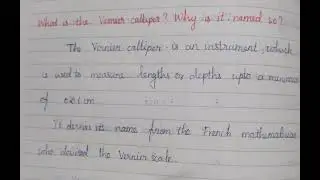 What is the Vernier calliper? Why is it named so?
The Vernier calliper is an instrument, which
is used to measure lengths or depths upto a minimum
of 0.01 cm
It derives its name from the French
who devised the Vernier scale.